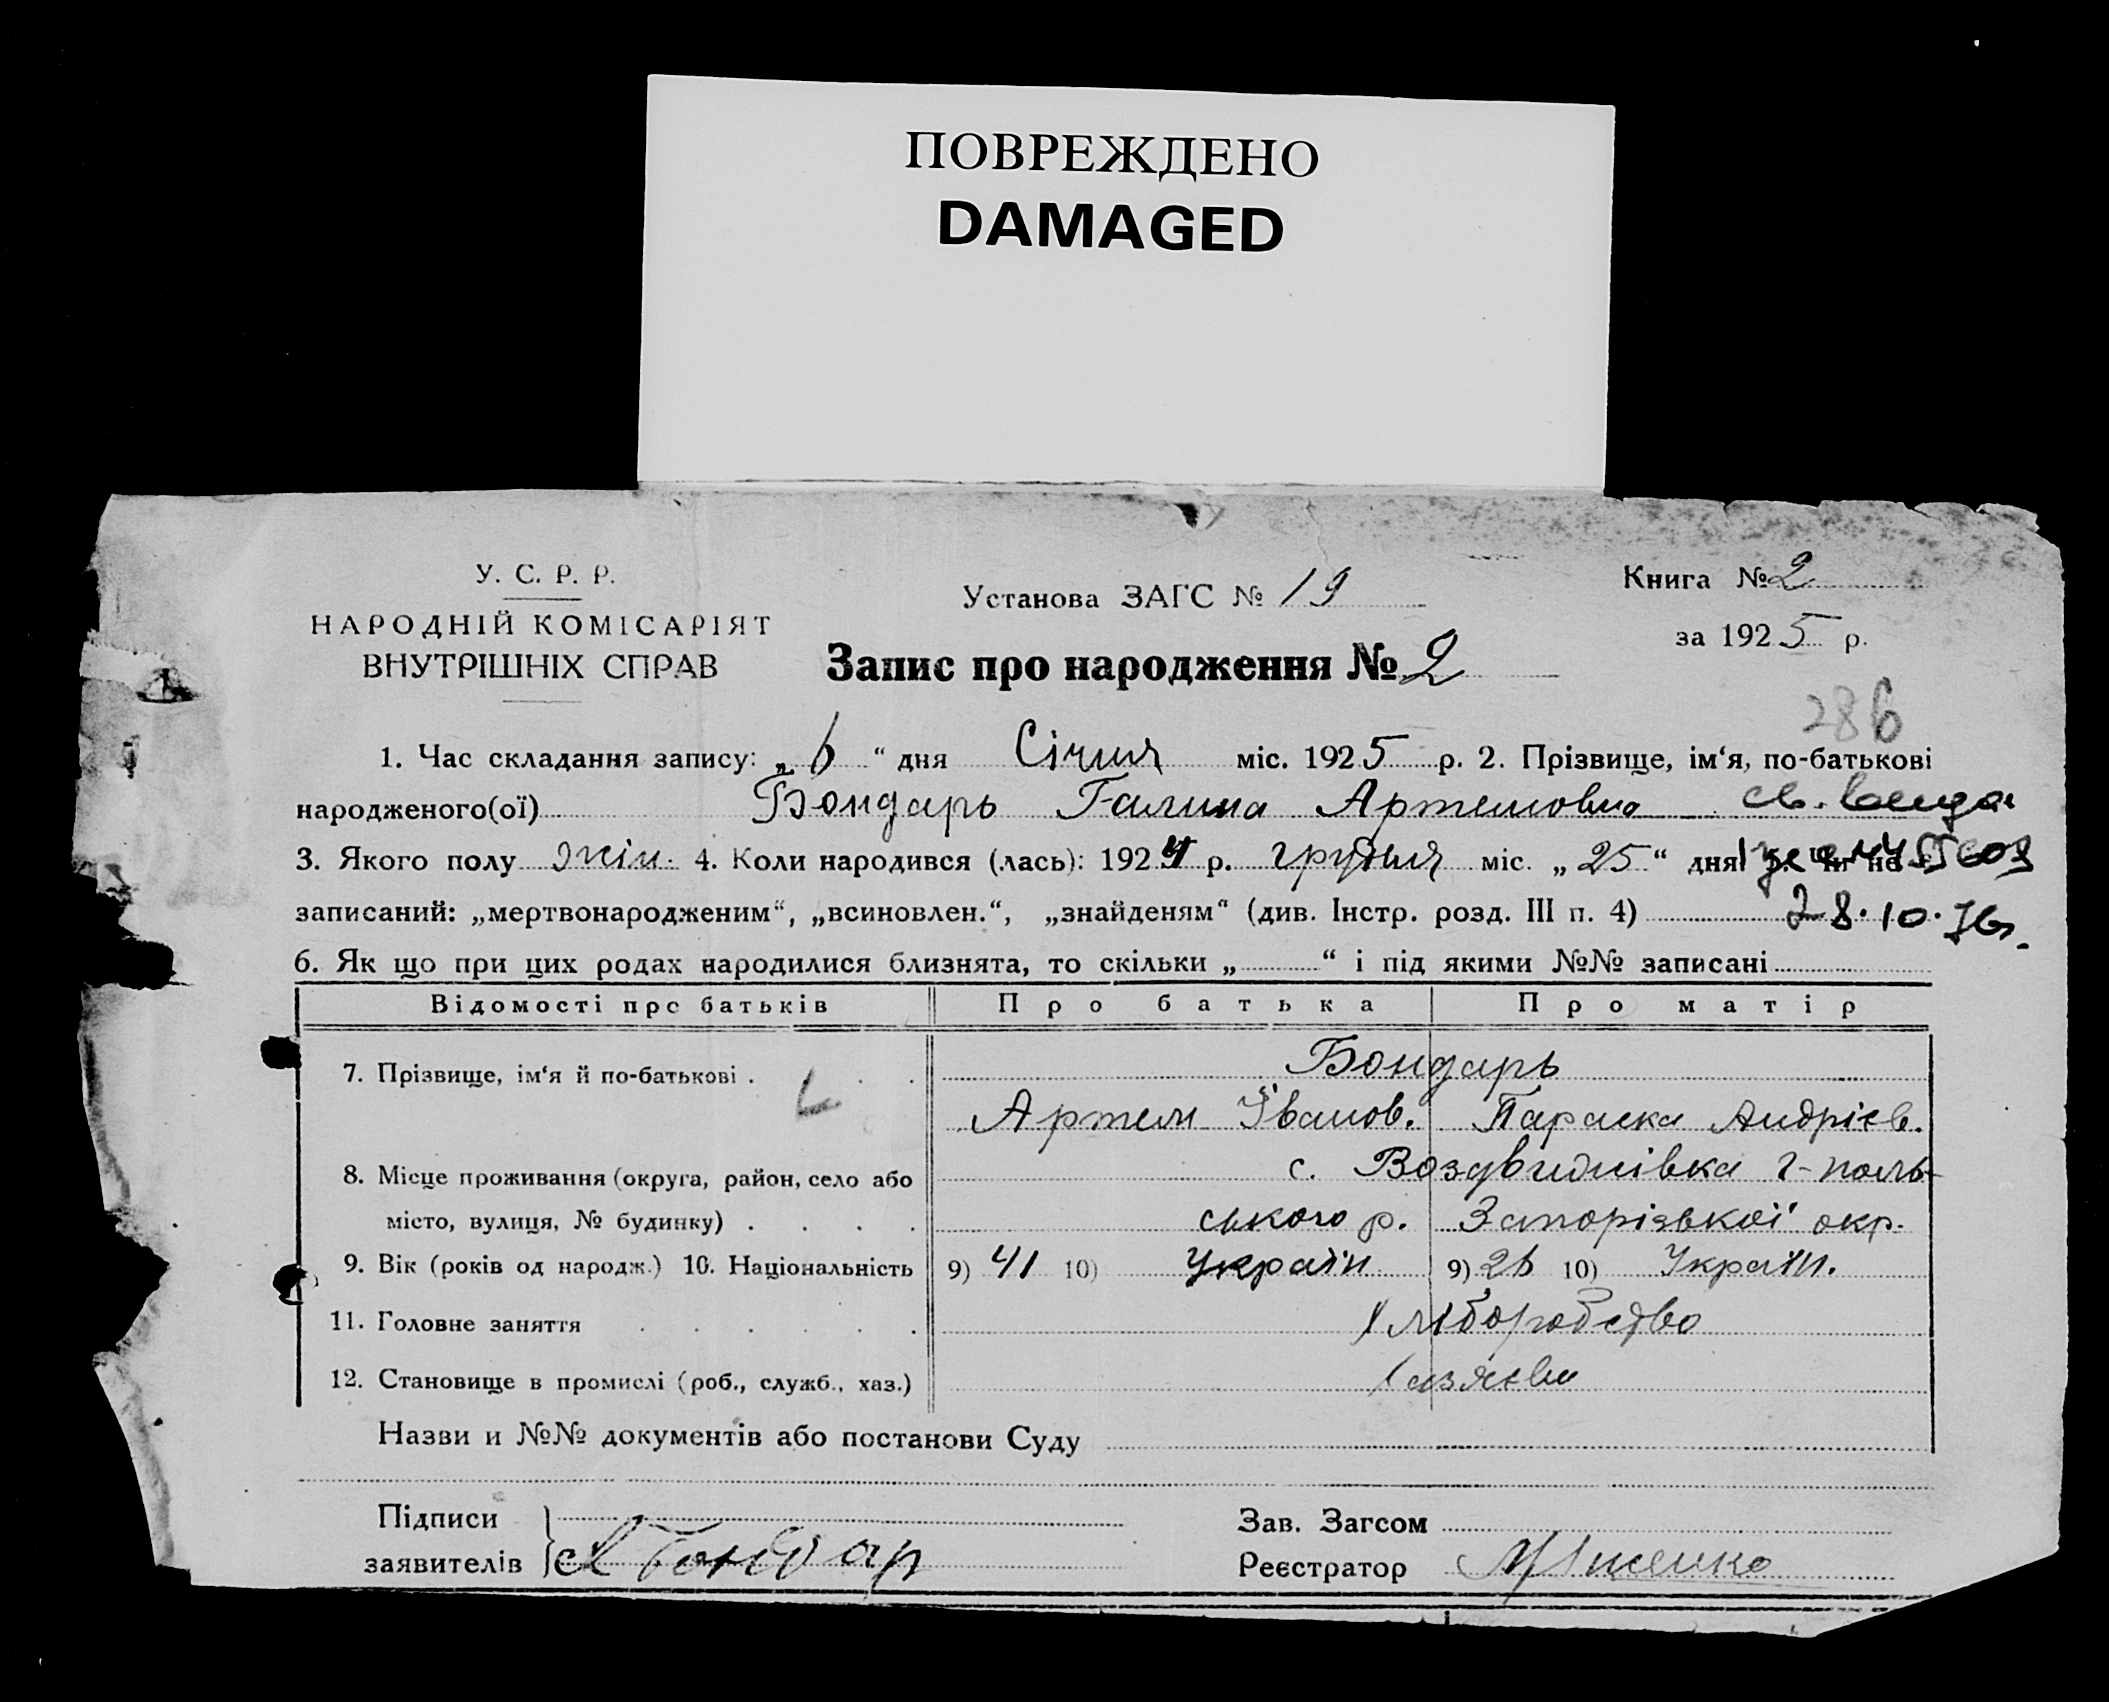 ПОВРЕЖДЕНО
DAMAGED
У. С. Р. Р.
НАРОДНІЙ КОМІСАРІЯТ
ВНУТРІШНІХ СПРАВ
Установа ЗАГС № 19
Запис про народження № 2
Книга № 2
за 1925 р.
286
1. Час складання запису: „6“ дня Січня міс. 1925 р. 2. Прізвище, ім‘я, по-батькові
народженого(ої) Бондарь Галина Артемовна св.
3. Якого полу жін. 4. Коли народився (лась): 1924 р. грудня міс. „25“ дня
записаний: „мертвонародженим“, „всиновлен.“, „знайденям“ (див. Інстр. розд. III п. 4) 28.10.76г.
6. Як що при цих родах народилися близнята, то скільки „ “ і під якими №№ записані
Відомості про батьків Про батька Про матір
7. Прізвище, ім‘я й по-батькові . . . Бондарь
Артем Іванов. Параска Андрієв.
8. Місце проживання (округа, район, село або с. Воздвижнівка г-поль-
місто, вулиця, № будинку) . . . . ського р. Запорізької окр.
9. Вік (років од народж.) 10. Національність 9) 41 10) Україн 9) 26 10) Україн.
11. Головне заняття . . . . . . Хліборобство
12. Становище в промислі (роб., служб., хаз.) Хазяєви
Назви и №№ документів або постанови Суду
Підписи
заявителів А Бондар
Зав. Загсом
Реєстратор